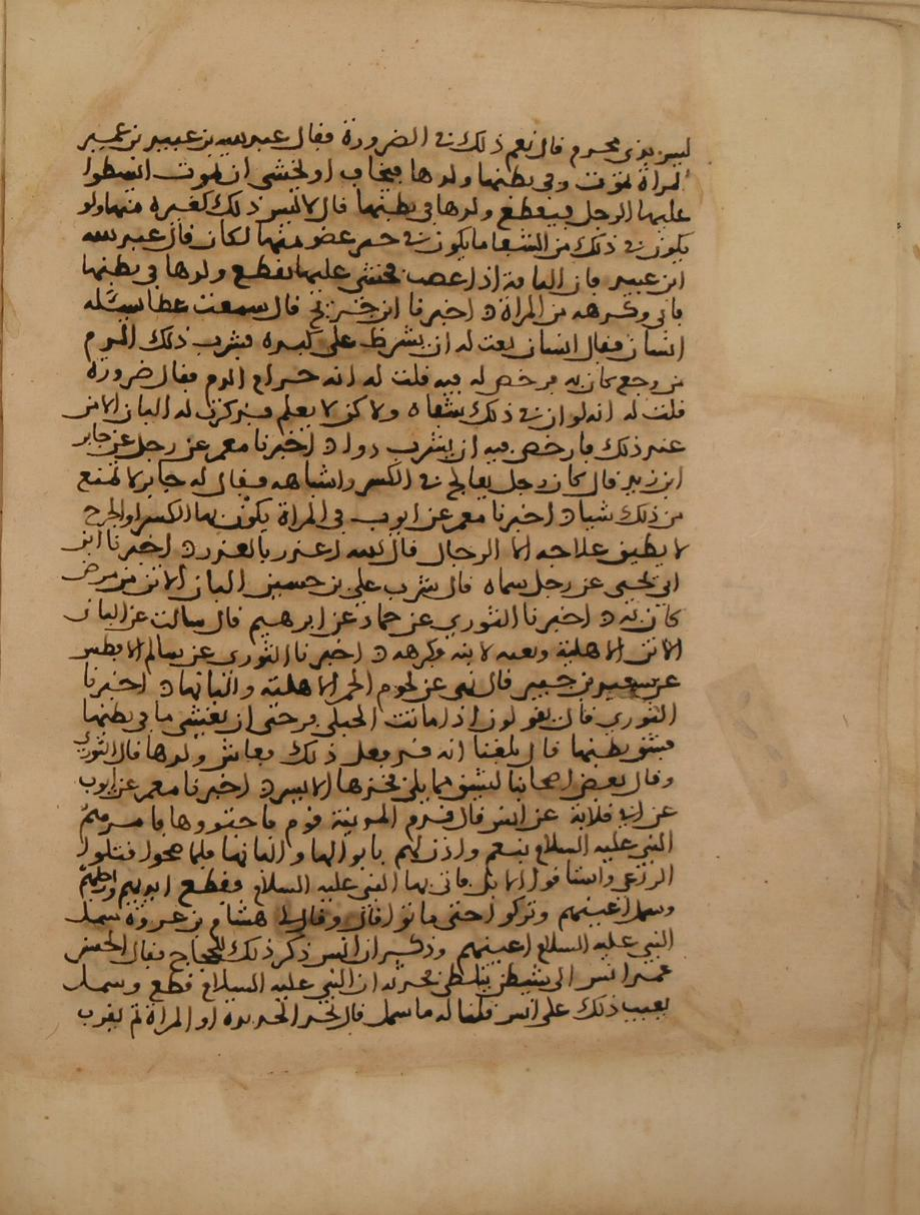 ليس بذي محرم قال نعم ذلك في الضرورة فقال عبد الله بن عبيد بن عمير
المرأة تموت وفي بطنها ولدها فيخاف او يخشى ان يموت ايسطوا
عليها الرجل فيقطع ولدها في بطنها قال لا ليس ذلك كغيره منها ولو
يكون في ذلك من الشفا ما يكون في عضو منها لكان قال عبد الله
ابن عبيد فان الناقة اذا عضبت يخشى عليها يقطع ولدها في بطنها
فابى وكرهه من المرأة اخبرنا ابن جريج قال سمعت عطا يسئله
انسان فقال انسان نعت له ان يشرط على كبده فيشرب ذلك الدم
من وجع كان به فرخص له فيه قلت له انه حرام الدم فقال ضرورة
قلت له انه لو ان في ذلك شفاه ولاكن لا يعلم فذكرت له البان الاتن
عند ذلك فارخص فيه ان يشرب دوا اخبرنا معمر عن رجل عن جابر
ابن زيد قال كان رجل يعالج في الكسر واشباهه فقال له جابر لا تمنع
من ذلك شيا اخبرنا معمر عن ايوب في المرأة يكون بها الكسر او الجرح
لا يطيق علاجه الا الرجال قال الله اعذر بالعذر اخبرنا ابن
ابي يحيى عن رجل سماه قال شرب علي بن حسين البان الاتن من مرض
كان به اخبرنا الثوري عن حماد عن ابرهيم قال سالت عن البان
الاتن الاهلية ونعته لابنه فكرهه اخبرنا الثوري عن سالم الافطس
عن سعيد بن جبير قال نهى عن لحوم الحمر الاهلية والبانها اخبرنا
الثوري قال يقولون اذا ماتت الحبلى فرجي ان يعيش ما في بطنها
فيشق بطنها قال بلغنا انه قد فعل ذلك فعاش ولدها قال الثوري
وقال بعض اصحابنا ليشق مما يلي فخذها الايسر اخبرنا معمر عن ايوب
عن ابي قلابة عن انس قال قدم المدينة قوم فاحتووها فامر لهم
النبي عليه السلام بنعم واذن لهم بابوالها والبانها فلما صحوا قتلوا
الرعى واستاقوا الابل فاتى بها النبي عليه السلام فقطع ايديهم وارجلهم
وسمل اعينهم وتركوا حتى ماتوا قال وقال لي هشام بن عروة سمل
النبي عليه السلام اعينهم وذكر ان انس ذكر ذلك للحجاج فقال الحسن
عمد انس الى شيطن يتلظى يحدثه ان النبي عليه السلام قطع وسمل
يعيب ذلك على انس قلنا له ما سمل قال تحر الحديدة او المرأة ثم يقرب